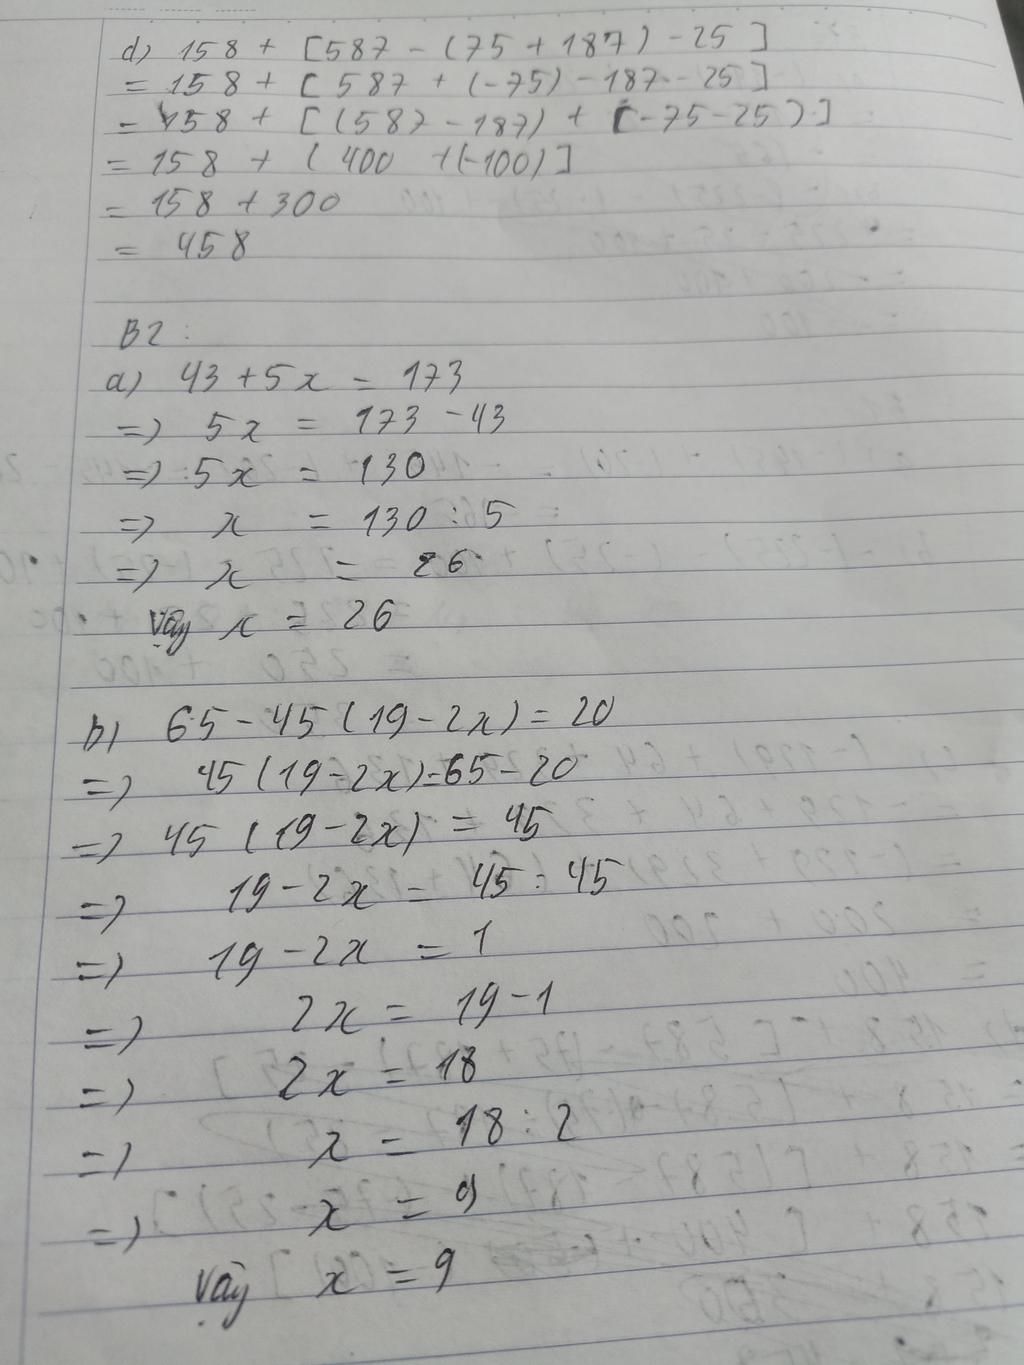 d) 158 + [587 - (75 + 187) - 25]
= 158 + [587 + (-75) - 187 - 25]
= 158 + [(587 - 187) + [-75-25)]
= 158 + (400 +(-100)]
= 158 + 300
= 458
B2:
a) 43 + 5x = 173
=> 5x = 173 - 43
=> 5x = 130
=> x = 130 : 5
=> x = 26
Vậy x = 26
b) 65 - 45 (19 - 2x) = 20
=> 45 (19 - 2x) = 65 - 20
=> 45 (19 - 2x) = 45
=> 19 - 2x = 45 : 45
=> 19 - 2x = 1
=> 2x = 19 - 1
=> 2x = 18
=> x = 18 : 2
=> x = 9
Vậy x = 9